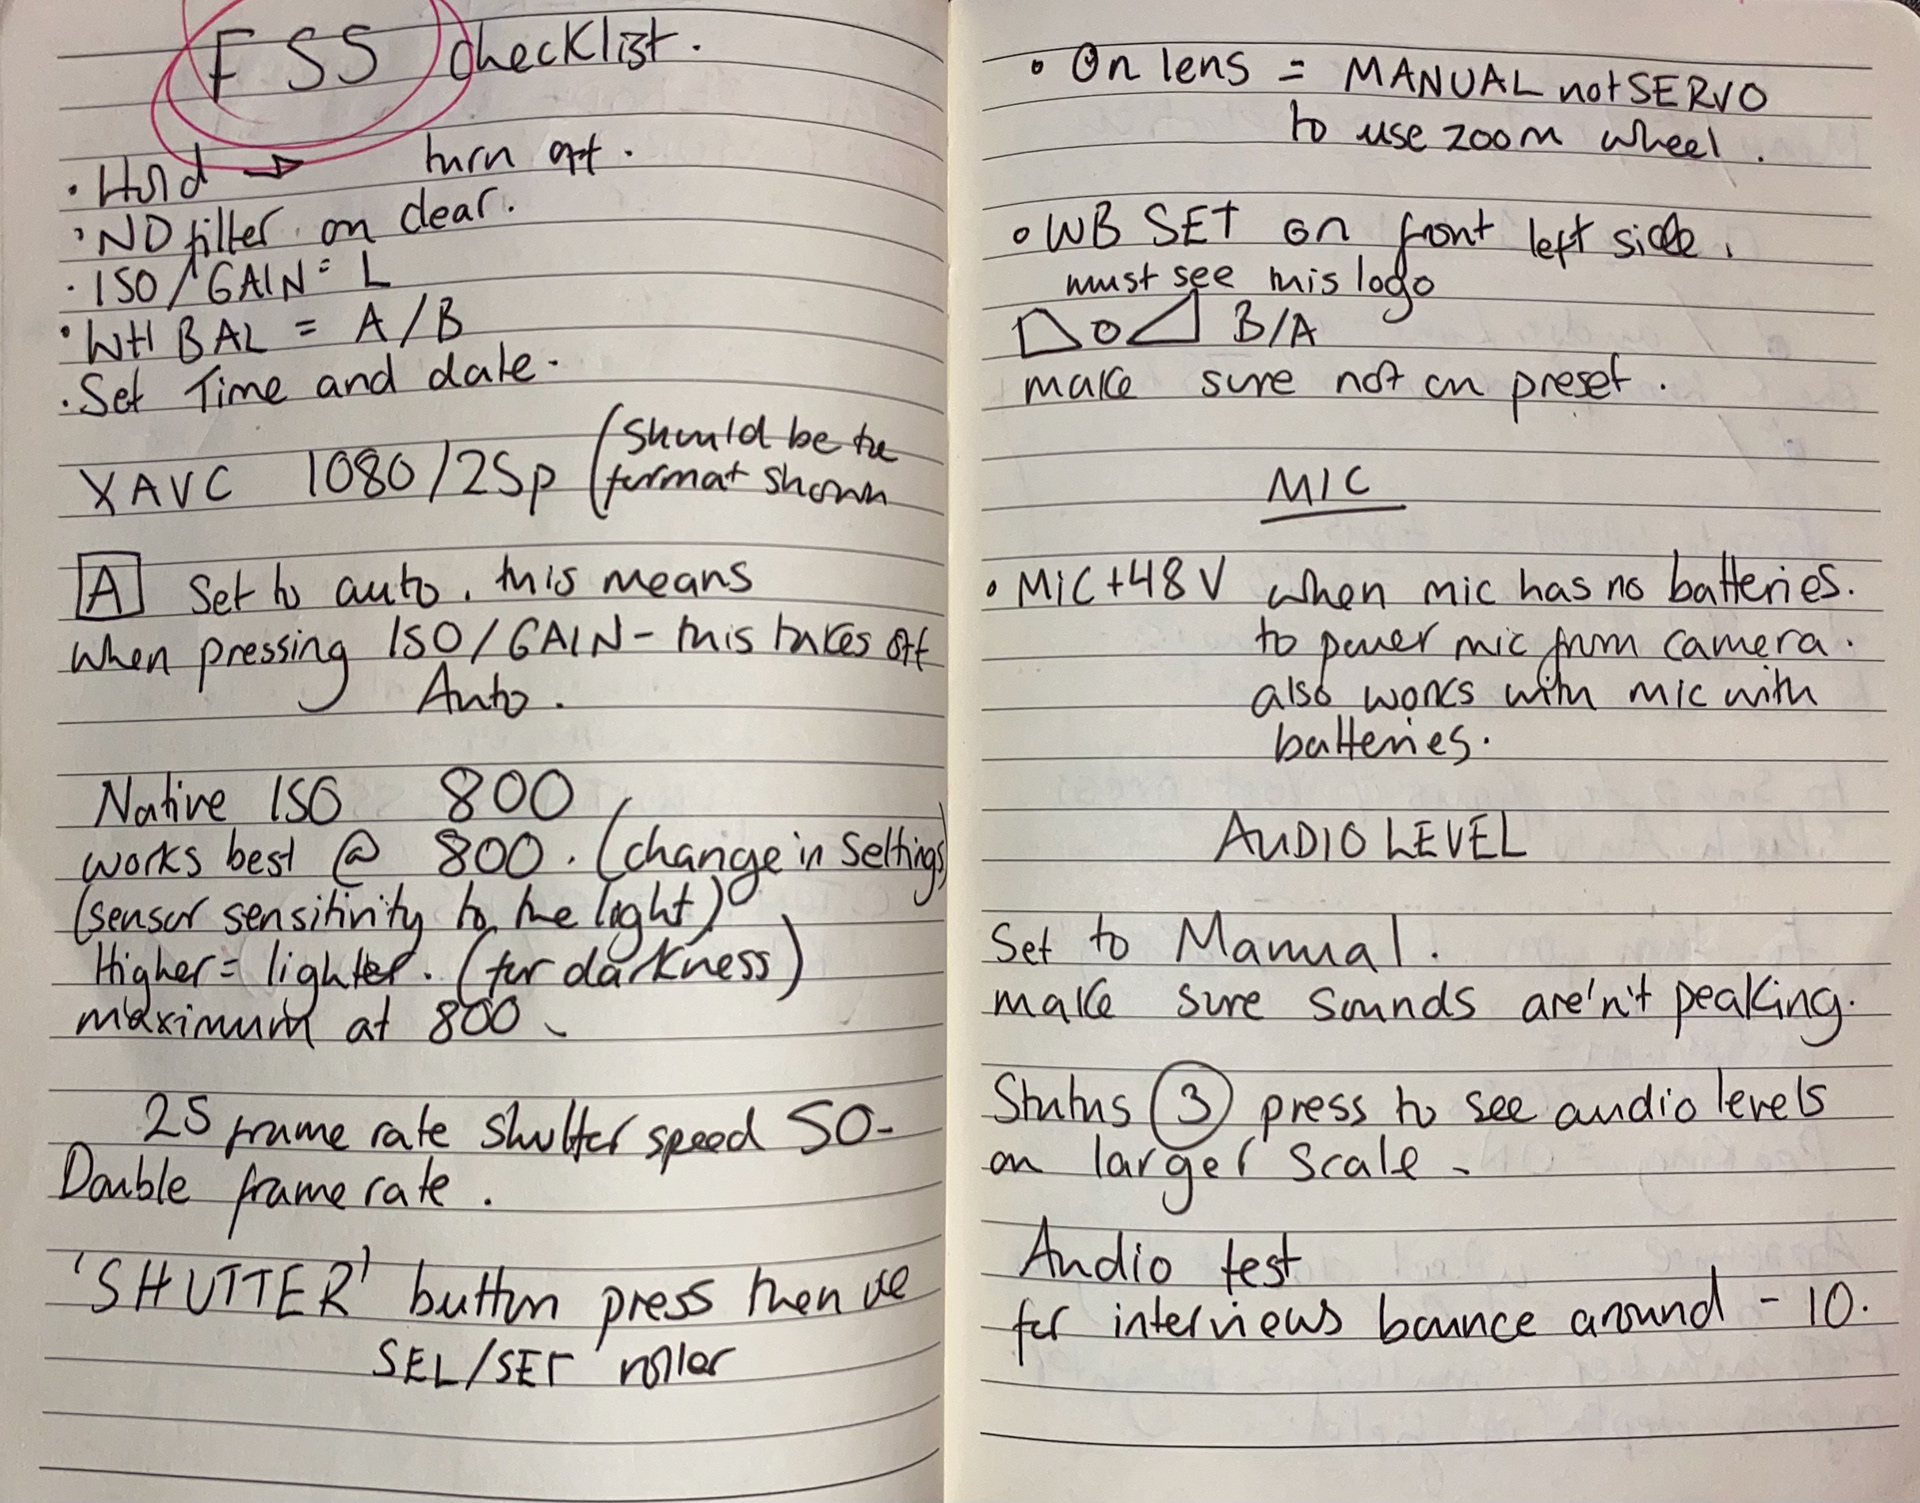 FS5 checklist.
• Hold → turn off.
• ND filter on clear.
• ISO/GAIN = L
• WH BAL = A/B
• Set Time and date.
XAVC 1080/25p (should be the
format shown
A Set to auto, this means
when pressing ISO/GAIN - this takes off
Auto.
Native ISO 800
works best @ 800. (change in settings)
(sensor sensitivity to the light)
Higher = lighter. (for darkness)
maximum at 800.
25 frame rate shutter speed 50 -
Double frame rate.
'SHUTTER' button press then use
SEL/SET roller
• On lens = MANUAL not SERVO
to use zoom wheel.
• WB SET on front left side.
must see this logo
B/A
make sure not on preset.
MIC
• MIC+48V when mic has no batteries.
to power mic from camera.
also works with mic with
batteries.
AUDIO LEVEL
Set to Manual.
make sure sounds are'n't peaking.
Status 3 press to see audio levels
on larger scale -
Audio test
for interviews bounce around - 10.